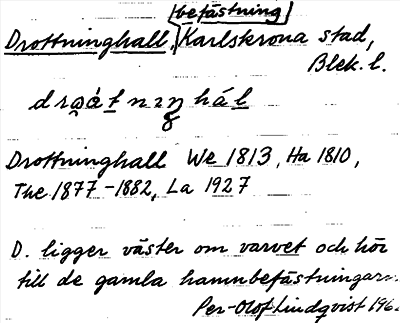 befästning
Drottninghall, Karlskrona stad,
Blek. l.
Drottninghall We 1813, Ha 1810,
The 1877-1882, La 1927
D. ligger väster om varvet och hör
till de gamla hamnbefästningarna.
Per-Olof Lindqvist